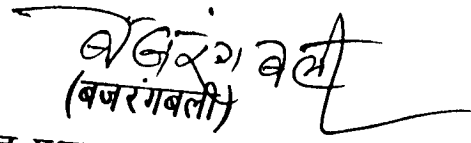 बजरंग बली
(बजरंगबली)